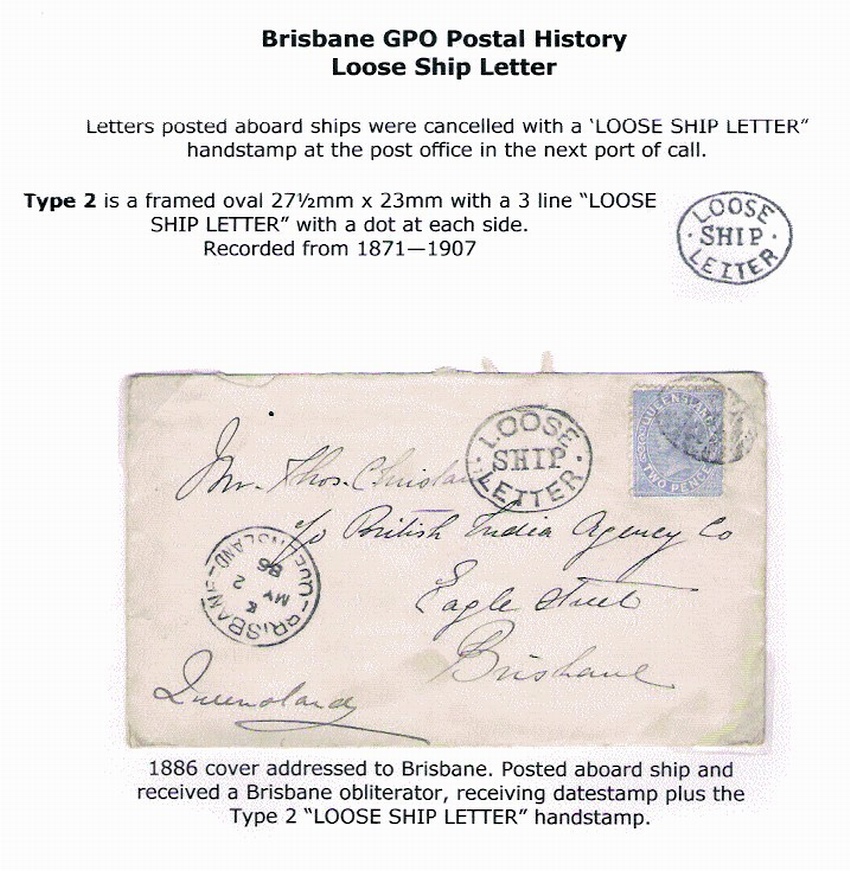 Brisbane GPO Postal History
Loose Ship Letter
Letters posted aboard ships were cancelled with a ‘LOOSE SHIP LETTER”
handstamp at the post office in the next port of call.
Type 2 is a framed oval 27½mm x 23mm with a 3 line “LOOSE
SHIP LETTER” with a dot at each side.
Recorded from 1871—1907
LOOSE
· SHIP ·
LETTER
LOOSE
· SHIP ·
LETTER
QUEENSLAND
TWO PENCE
Mr. Thos.
c/o British India Agency Co
Eagle Street
Brisbane
Queensland
BRISBANE
MY
2
86
QUEENSLAND
1886 cover addressed to Brisbane. Posted aboard ship and
received a Brisbane obliterator, receiving datestamp plus the
Type 2 “LOOSE SHIP LETTER” handstamp.